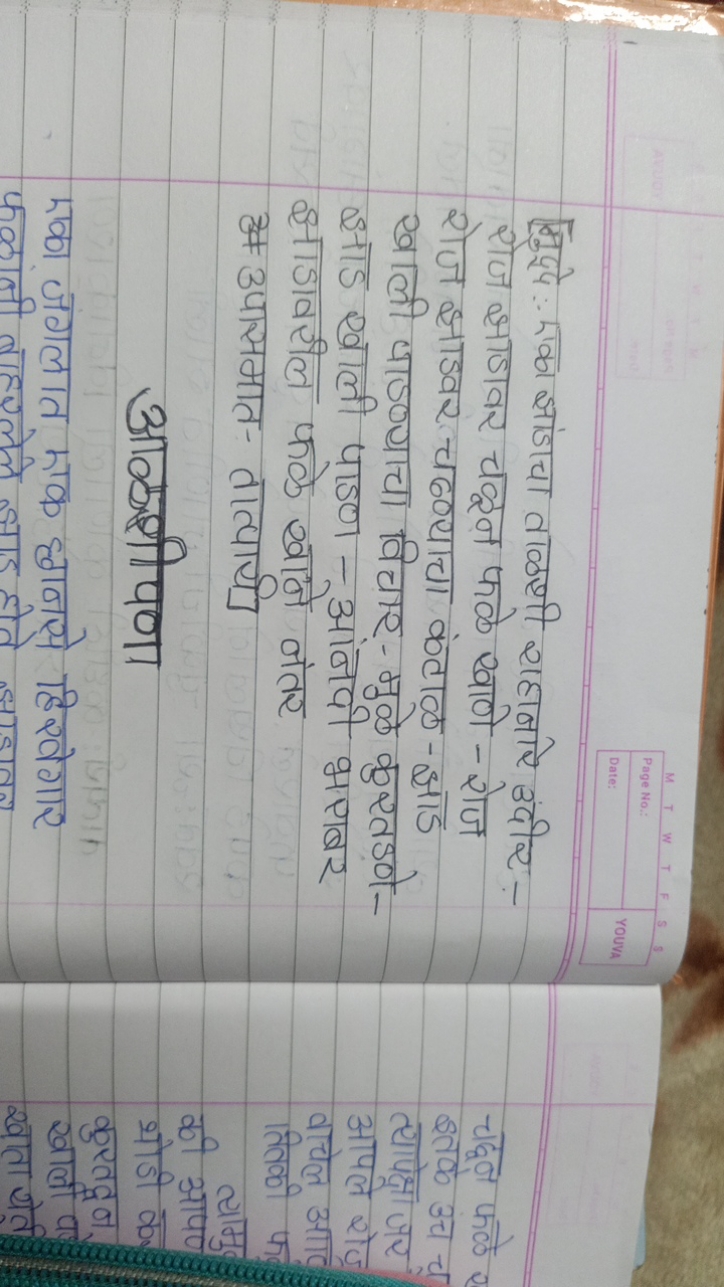 M T W T F S S
Page No.:
Date:
YOUVA
[मुद्दे :- एका झाडाचा ताळशी राहानारे उंदीर -
रोज झाडावर चढून फळे खाणे - रोज
रोज झाडवर चढण्याचा कंटाळ - झाड
खाली पाडण्याचा विचार - मुळे कुरतडणे -
झाड खाली पाडणा - आंनदी भराबर
झाडावरील फळे खाने नंतर
उपासमात - तात्पर्य]
आळशीपणा
एका जंगलात एक छानसे हिरवेगार
फळांनी बहरलेले झाड होते झाडावर
चढून फळे
इतके उंच
त्यापेक्षा जर
आपले रोज
वाचेल आणि
तितकी
त्यामु
की आपण
थोडी
कुरतडून
खाली
खाता येती